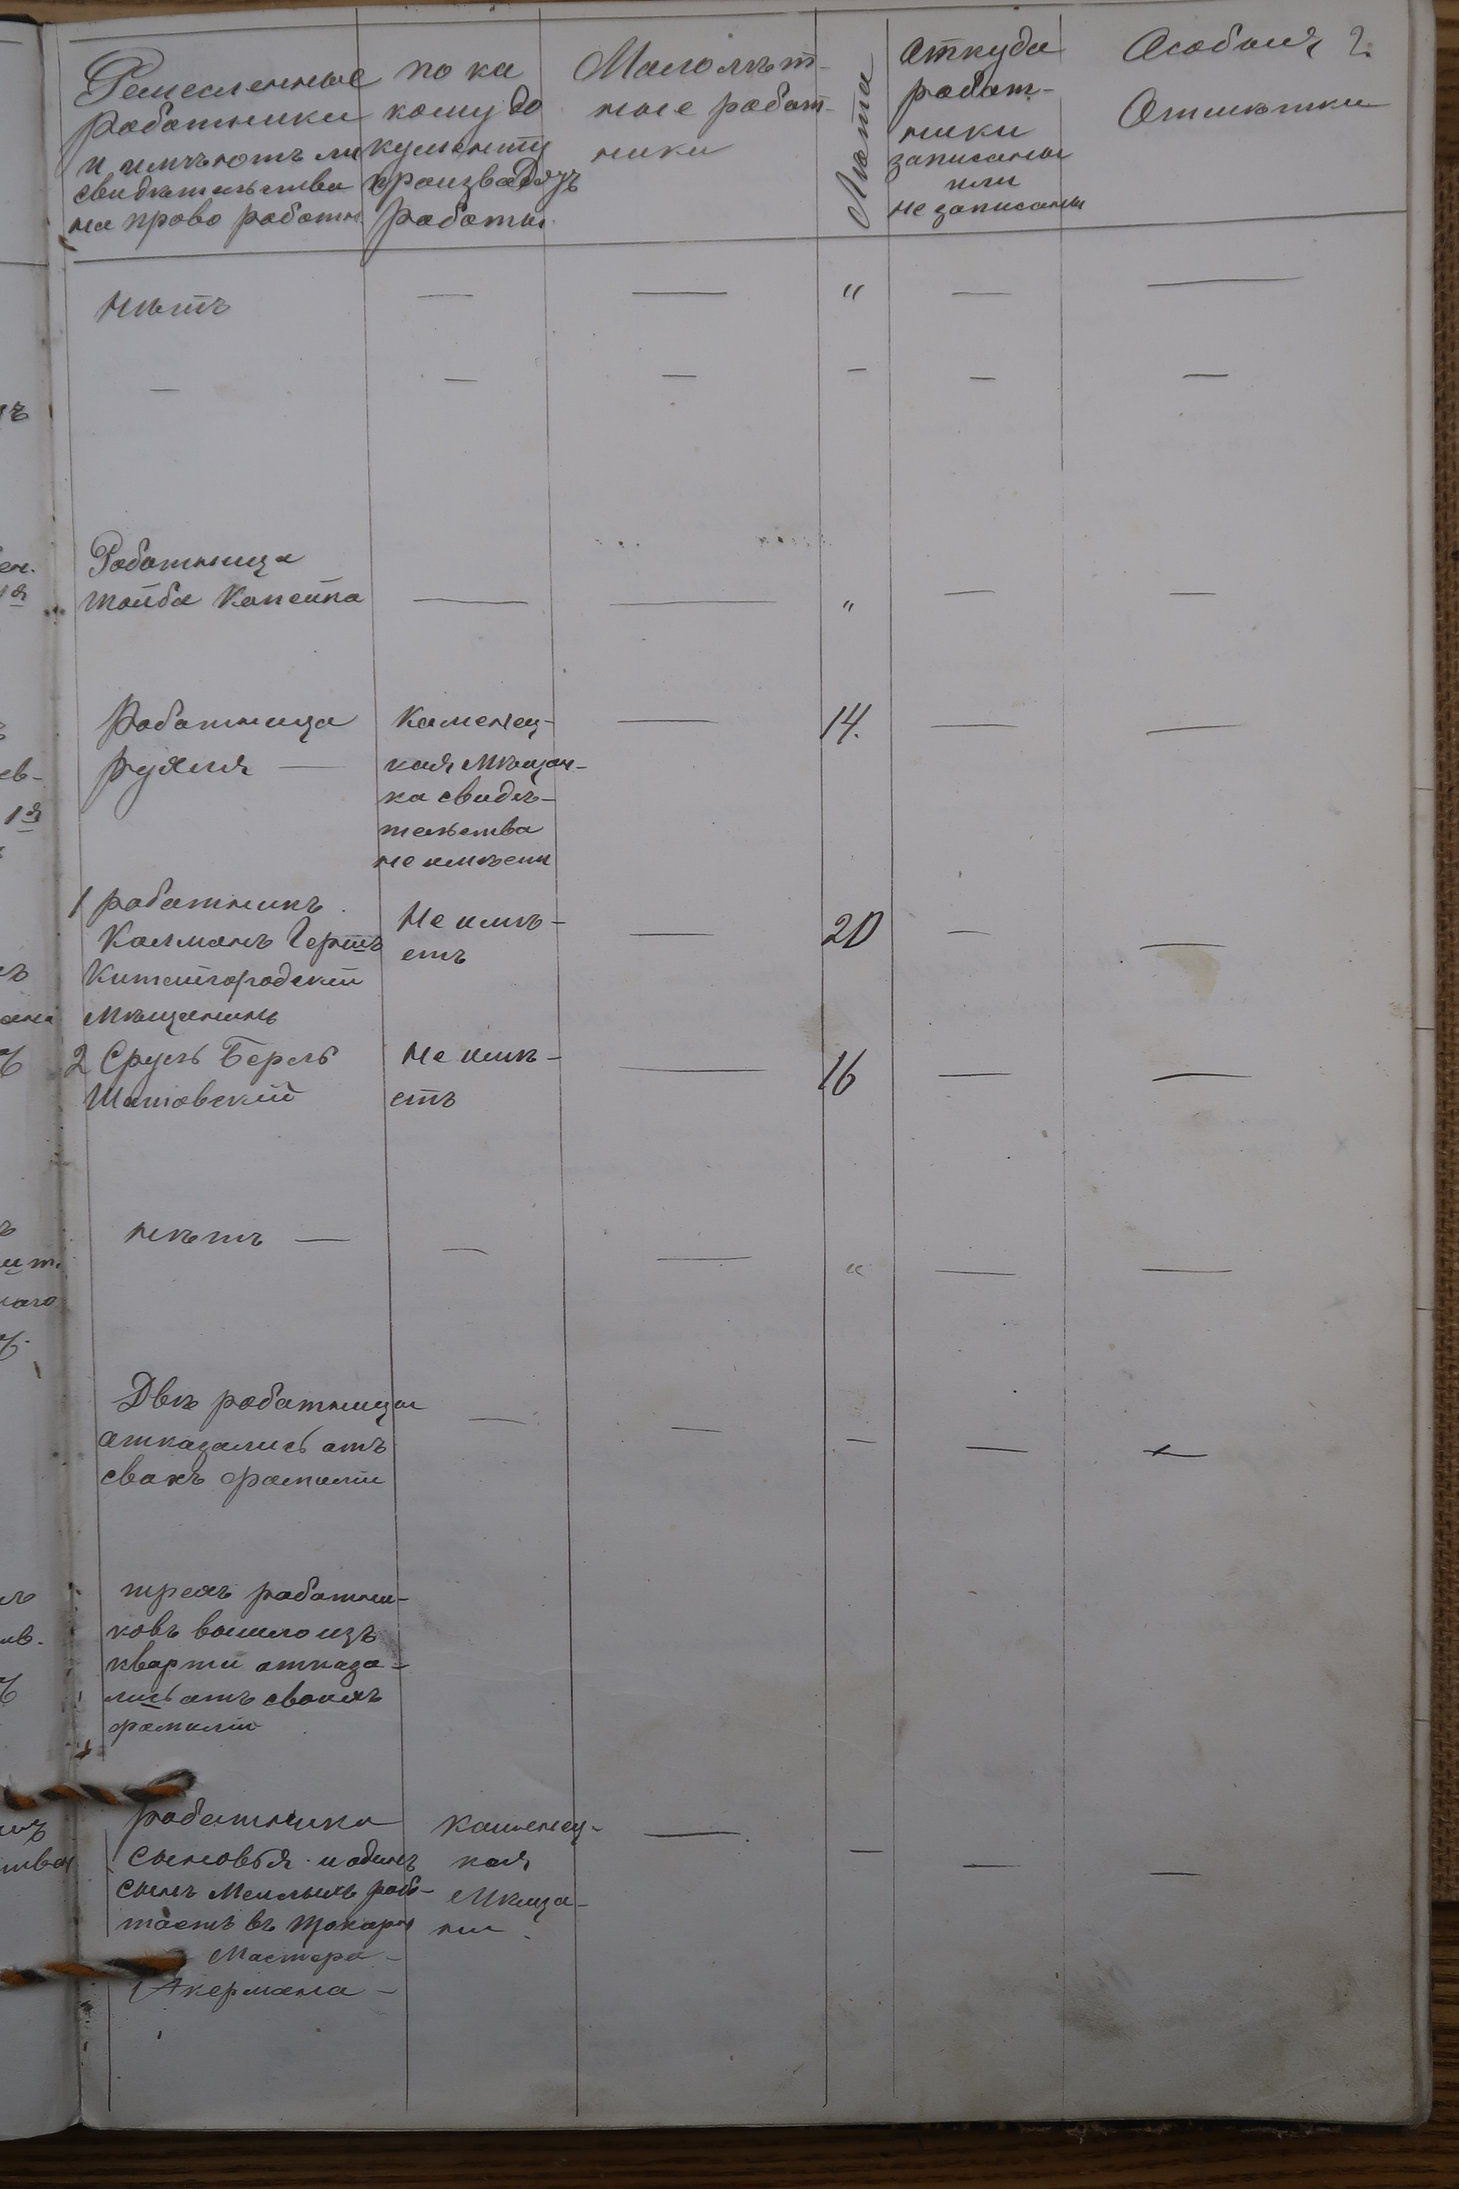 2
Ремесленные
работники
и имѣютъ ли
свидѣтельства
на право работы
по ка
кому до
кументу
производятъ
работы.
Малолѣт-
ные работ-
ники
Лѣта
Аткуда
работ-
ники
записаны
или
не записаны
Асобыя
Отмѣтки
нѣтъ — — " — —
— — — — — —
Работница
Тойба Капейка — — " — —
Работница
Рухля —
Каменец-
кая мѣщан-
ка свидѣ-
тельства
не имѣетъ
— 14. — —
1 работникъ
Калманъ Гершъ
Китайгородскій
мѣщанинъ
Не имѣ-
етъ
— 20 — —
2 Сруль Берль
Шатовскій
Не имѣ-
етъ
— 16 — —
нѣтъ — — — " — —
Двѣ работницы
атказались атъ
свахъ фамилій
— — — — —
трехъ работни-
ковъ вышло изъ
кварти атказа-
лись атъ своихъ
фамилій
работники
сыновья и одинъ
сынъ рабо-
таетъ въ токаря
Мастера —
Акермана —
каменец-
кая
мѣща-
не
— — — —